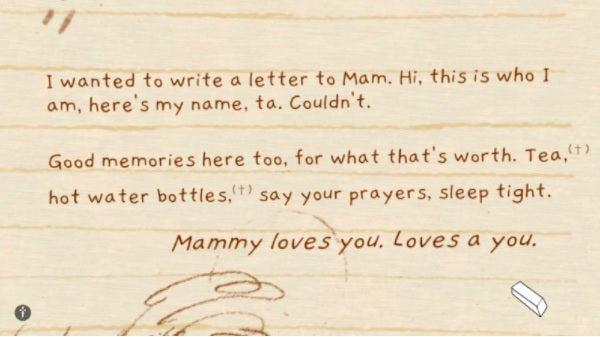 I wanted to write a letter to Mam. Hi, this is who I
am, here's my name, ta. Couldn't.
Good memories here too, for what that's worth. Tea,(†)
hot water bottles,(†) say your prayers, sleep tight.
Mammy loves you. Loves a you.